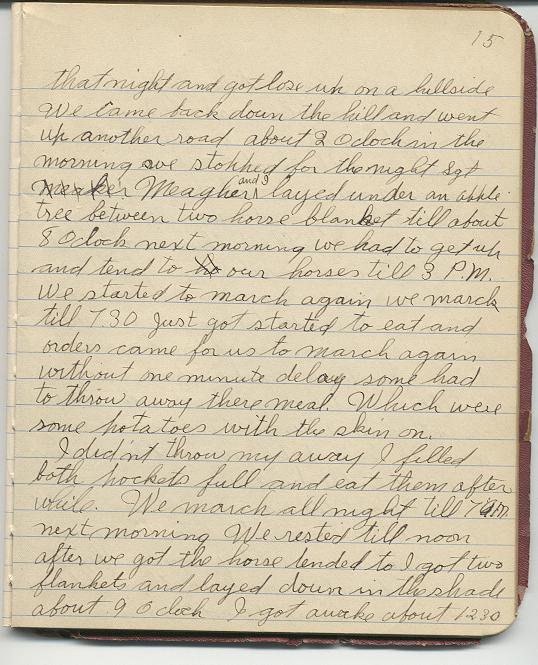 15
that night and got lose up on a hillside
We came back down the hill and went
up another road about 2 Oclock in the
morning we stopped for the night Sgt
Meagher and I layed under an apple
tree between two horse blanket till about
8 Oclock next morning we had to get up
and tend to our horses till 3 P.M.
We started to march again we march
till 7.30 Just got started to eat and
orders came for us to march again
without one minute delay some had
to throw away there meal. Which were
some potatoes with the skin on.
I did'nt throw my away I filled
both pockets full and eat them after
while. We march all night till 7 am
next morning We rested till noon
after we got the horse tended to I got two
blankets and layed down in the shade
about 9 Oclock I got awake about 1230